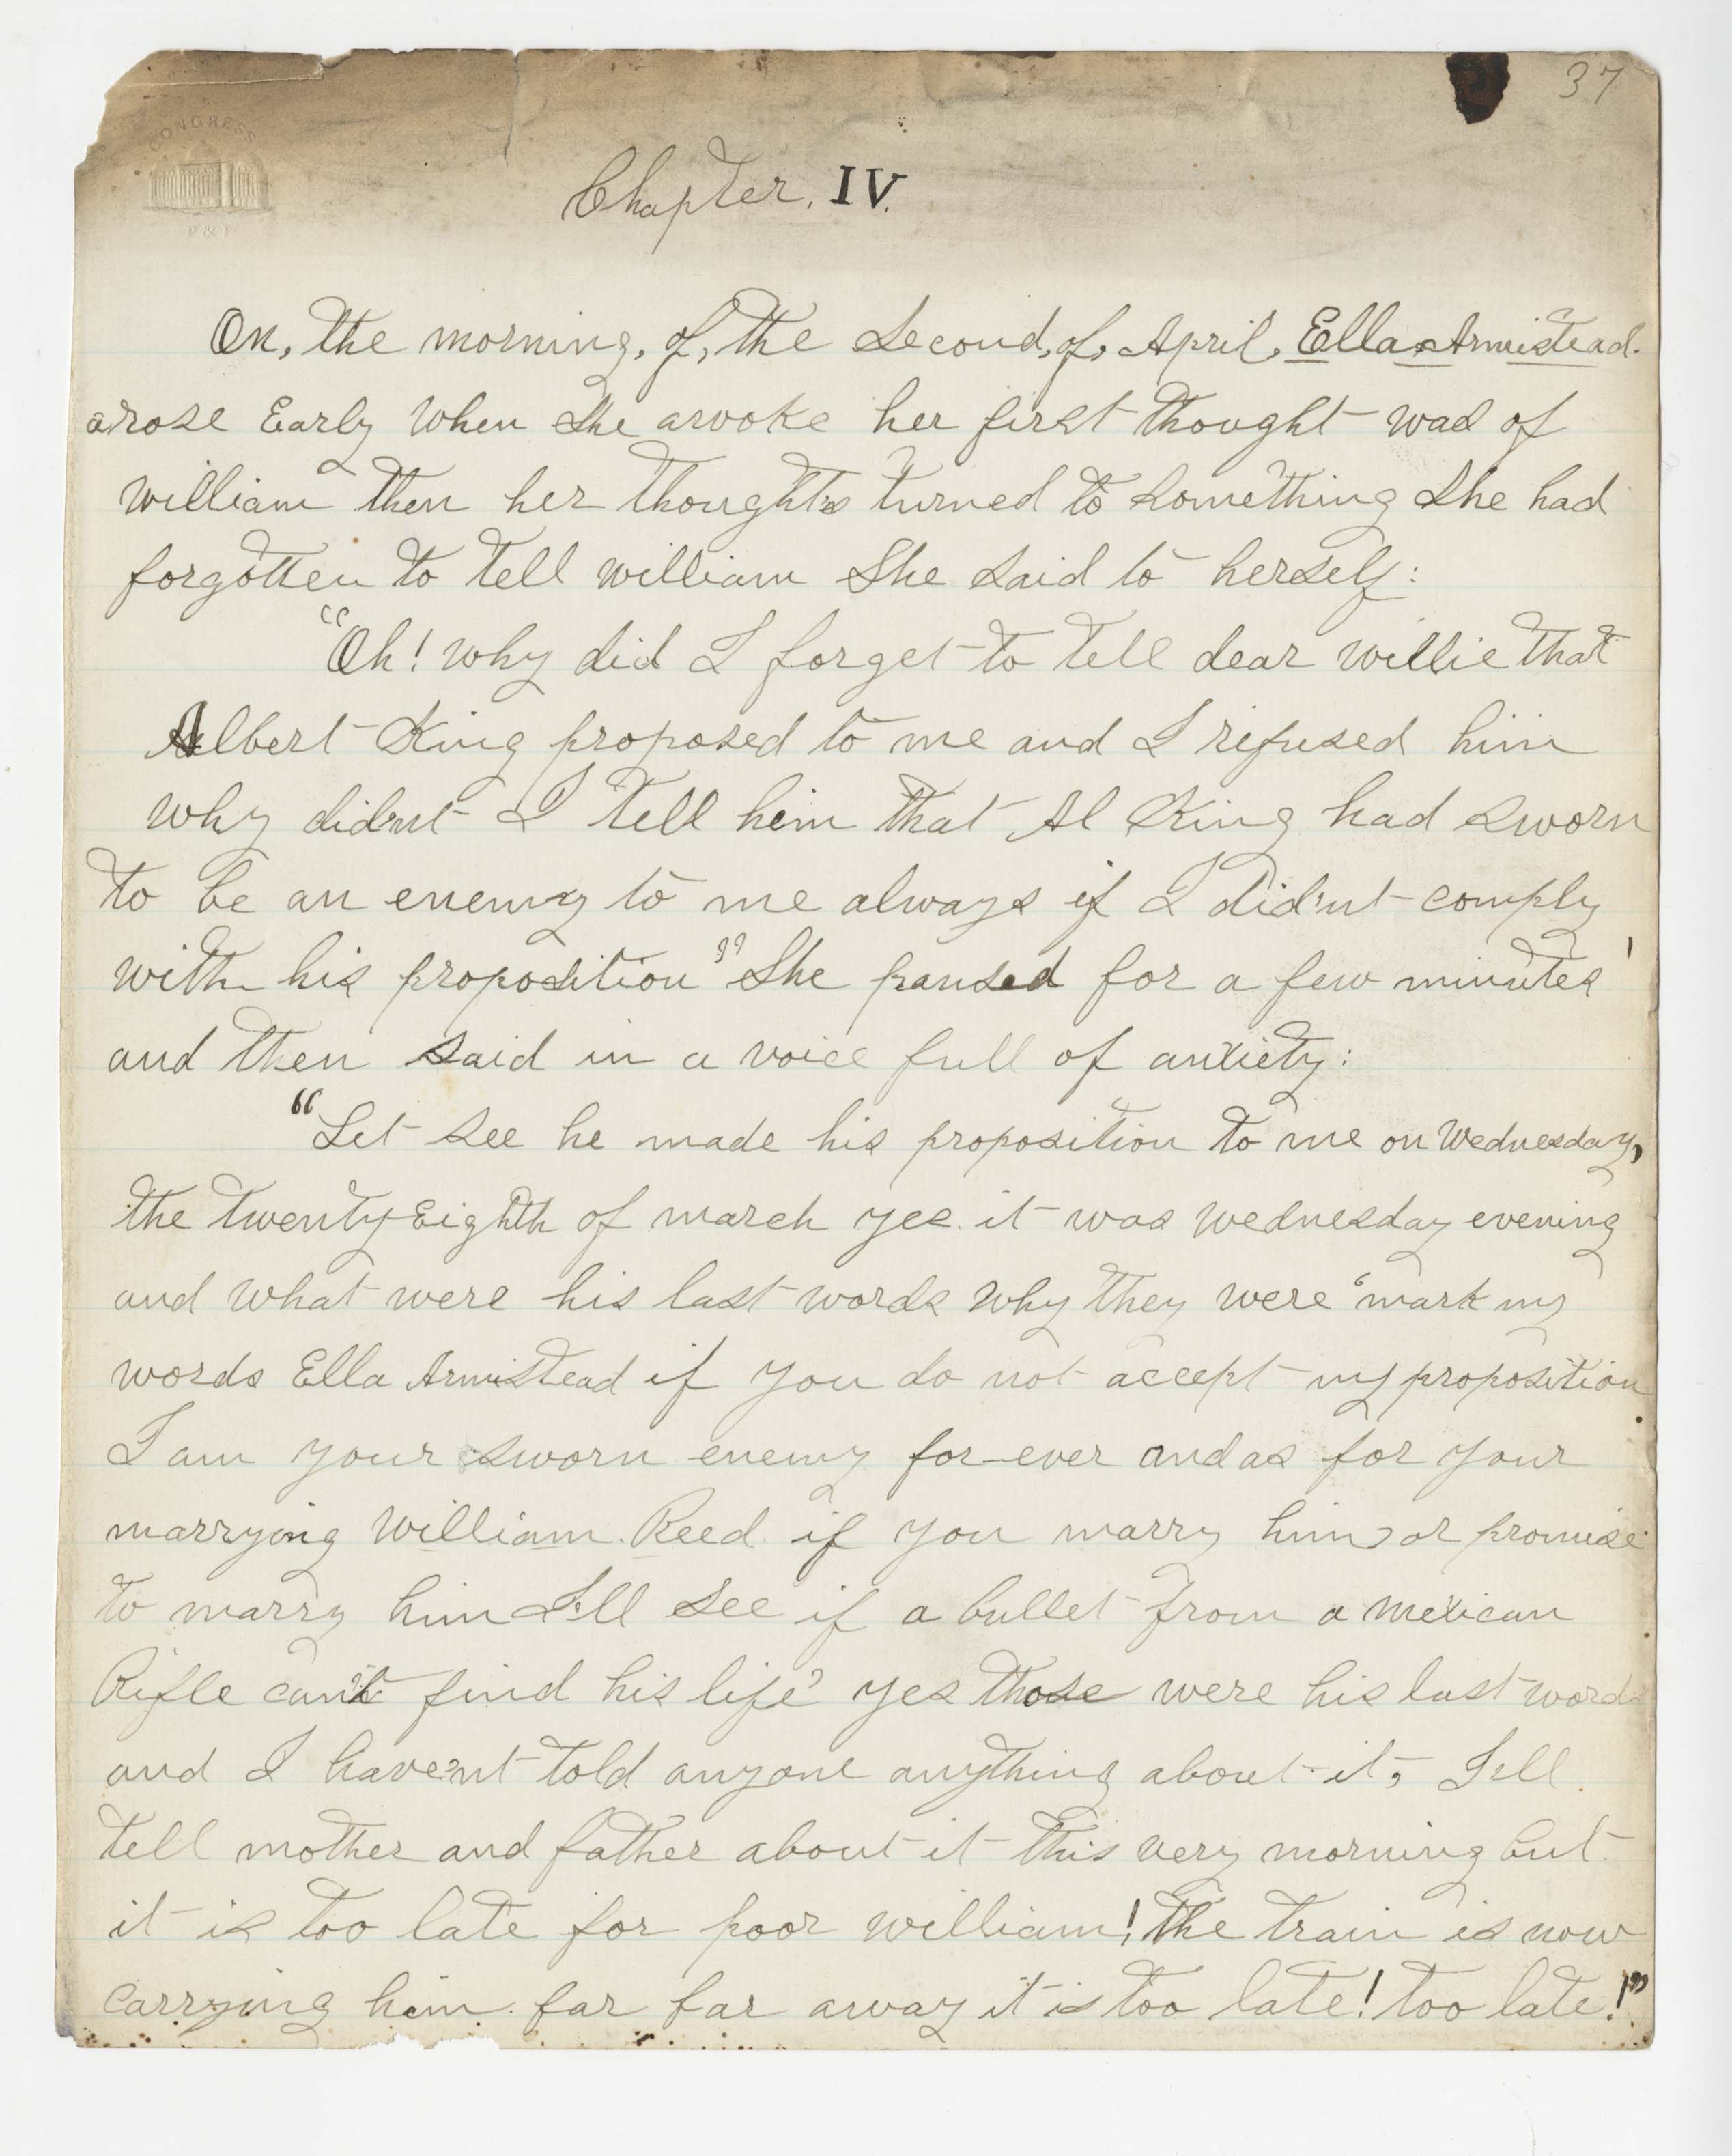 37
CONGRESS
P & P
Chapter. IV.
On, the morning, of, the second, of, April, Ella Armistead.
arose Early When She awoke her first thought was of
william then her thoughts turned to something She had
forgotten to tell william She said to herself:
"Oh! why did I forget to tell dear willie that
Albert King proposed to me and I refused him
why did'nt I tell him that Al King had sworn
to be an enemy to me always if I did'nt comply
with his proposition" She paused for a few minutes'
and then said in a voice full of anxiety:
"Let see he made his proposition to me on Wednesday,
the twenty Eighth of march yes. it was wednesday evening
and what were his last words why they were 'mark my
words Ella Armistead if you do not accept my proposition
I am your sworn enemy for-ever and as for your
marrying William. Reed. if you marry him or promise
to marry him I'll see if a bullet from a mexican
Rifle can't find his life' yes those were his last words
and I have'nt told anyone anything about it, I'll
tell mother and father about it this very morning but
it is too late for poor william! the train is now
carrying him. far far away it is too late! too late!"